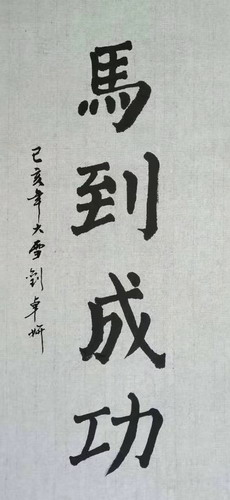 馬到成功
己亥年大雪劉卓妍